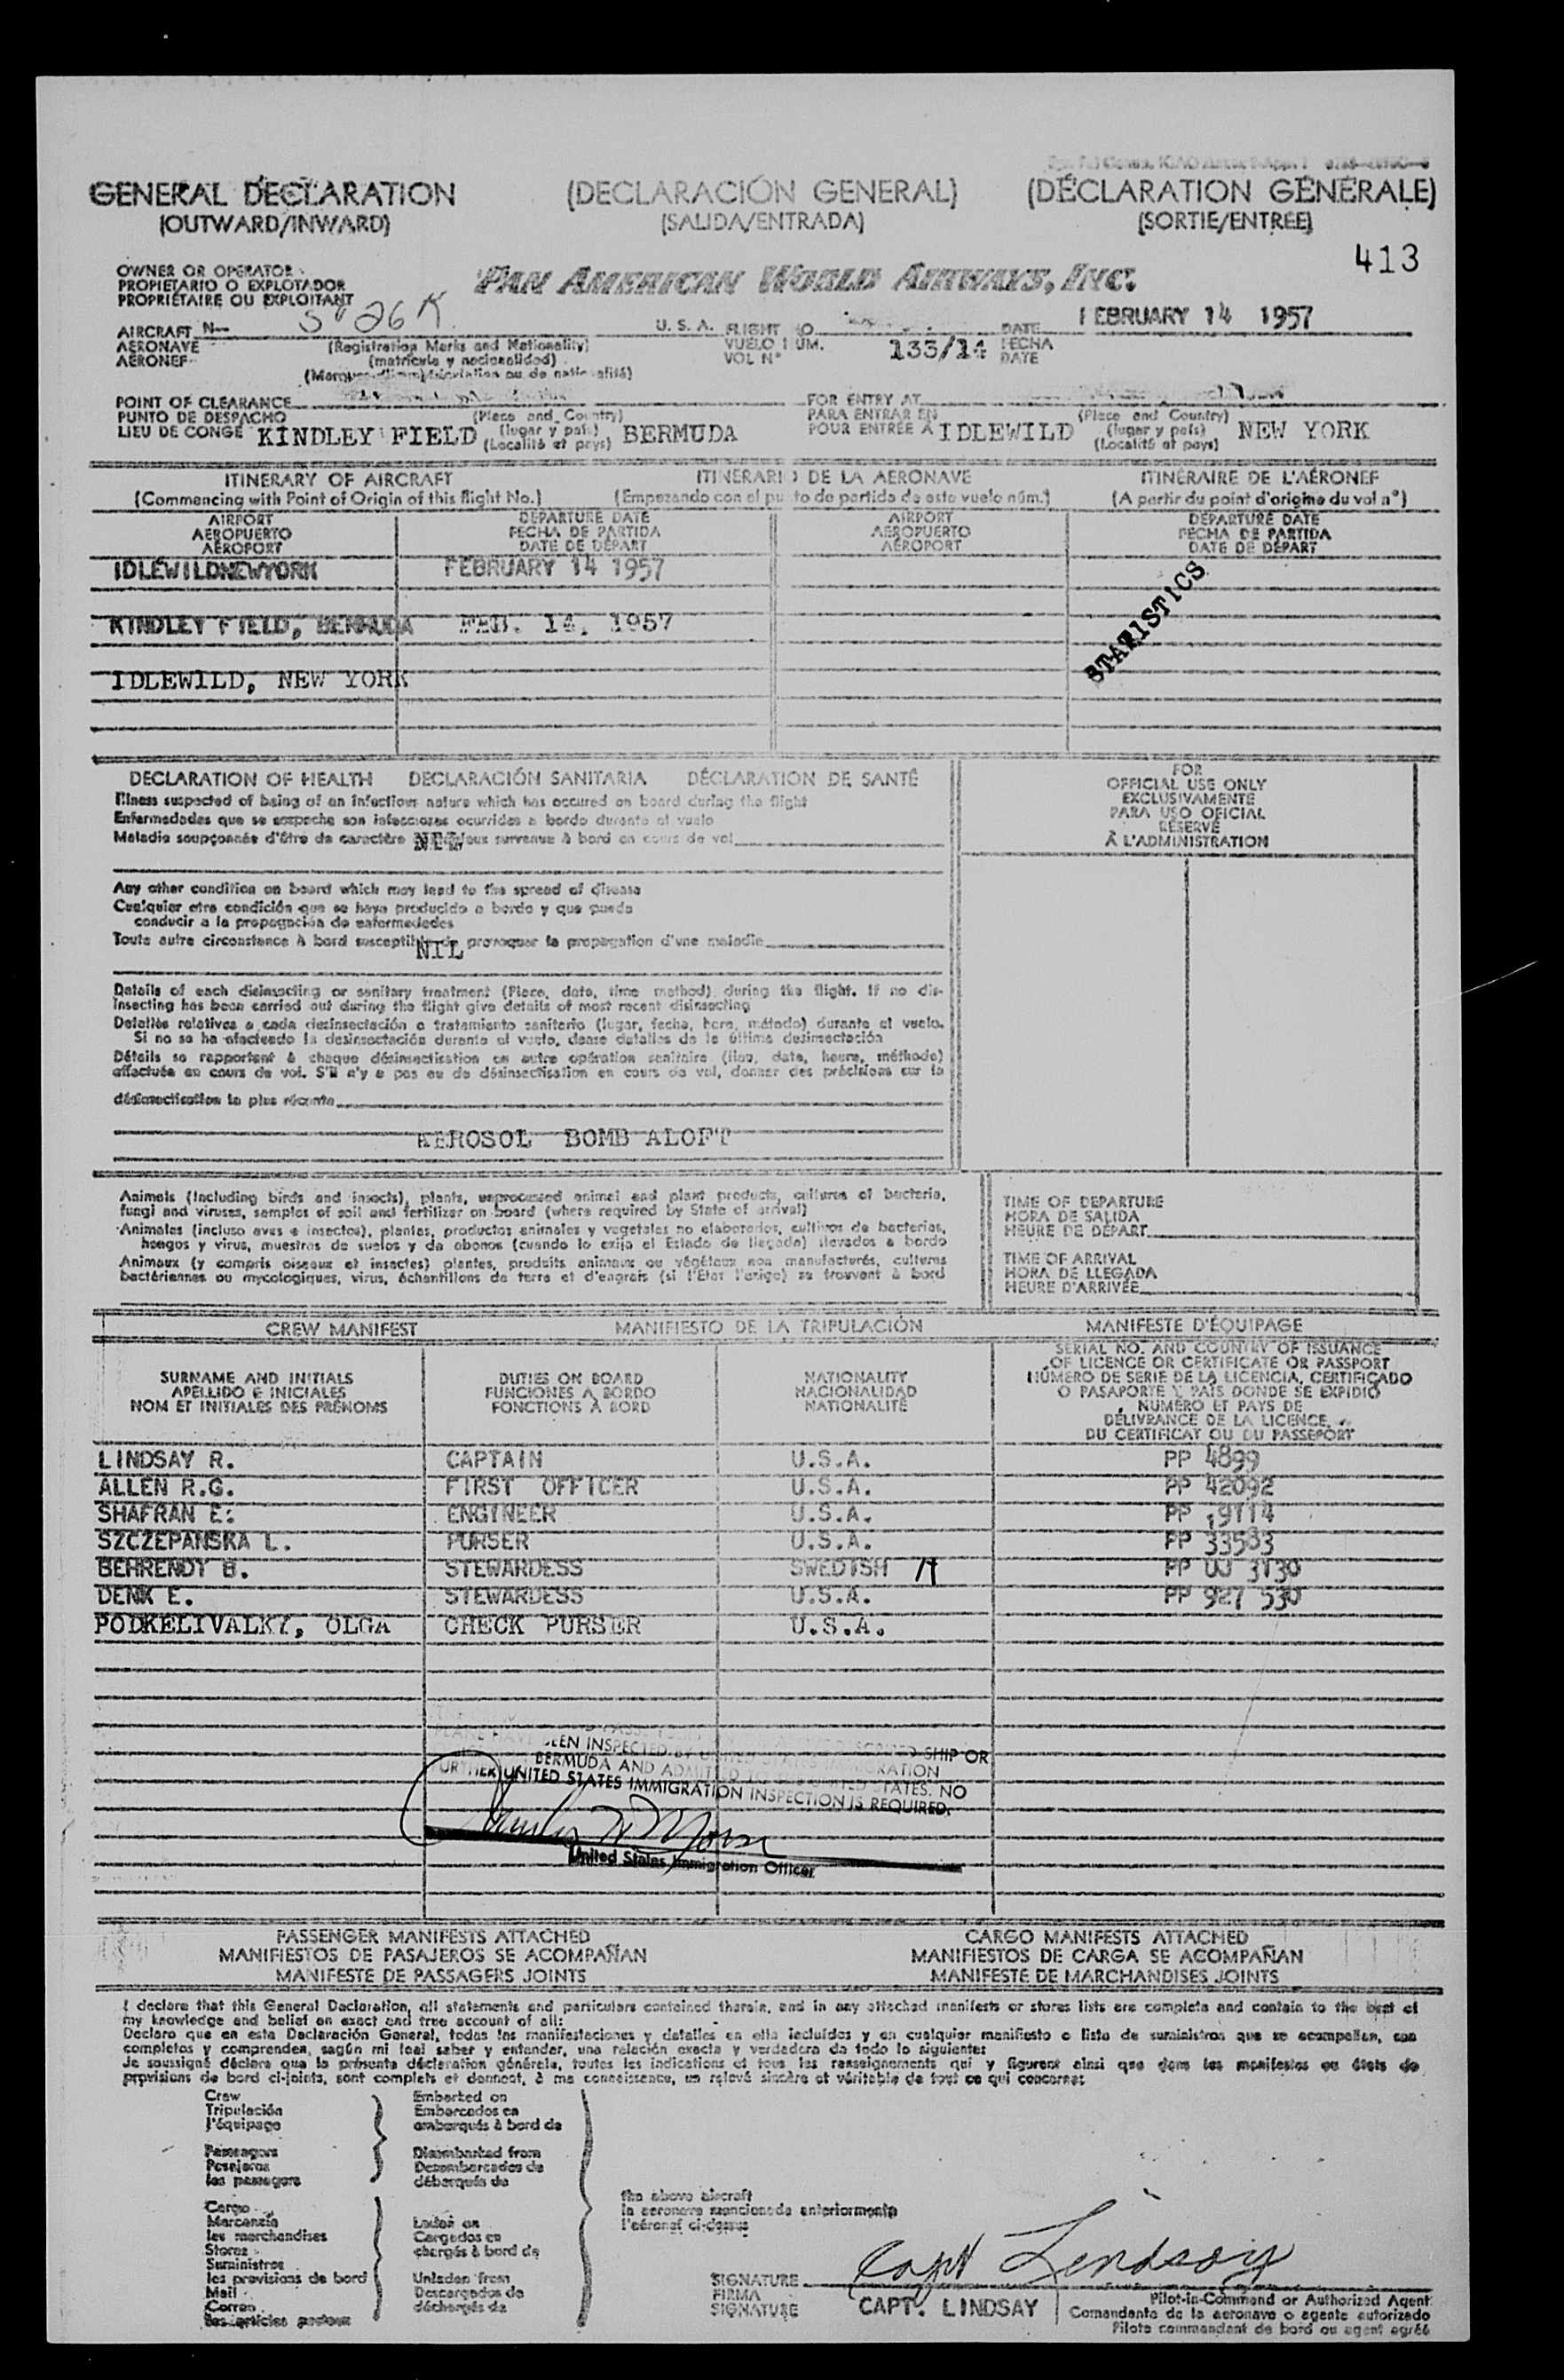 GENERAL DECLARATION (DECLARACIÓN GENERAL) (DÉCLARATION GÉNÉRALE)
(OUTWARD/INWARD) (SALIDA/ENTRADA) (SORTIE/ENTRÉE)
413
OWNER OR OPERATOR
PROPIETARIO O EXPLOTADOR
PROPRIÉTAIRE OU EXPLOITANT
PAN AMERICAN WORLD AIRWAYS, INC.
AIRCRAFT N— 26K U. S. A. FLIGHT NO. DATE FEBRUARY 14 1957
AERONAVE (Registration Marks and Nationality) VUELO NUM. 133/14 FECHA
AÉRONEF (matrícula y nacionalidad) VOL N° DATE
POINT OF CLEARANCE FOR ENTRY AT
PUNTO DE DESPACHO (Place and Country) PARA ENTRAR EN (Place and Country)
LIEU DE CONGE KINDLEY FIELD (lugar y país) BERMUDA POUR ENTRÉE A IDLEWILD (lugar y país) NEW YORK
(Localité et pays) (Localité et pays)
ITINERARY OF AIRCRAFT ITINERARIO DE LA AERONAVE ITINÉRAIRE DE L'AÉRONEF
(Commencing with Point of Origin of this flight No.) (Empezando con el punto de partida de este vuelo núm.) (A partir du point d'origine du vol n°)
AIRPORT DEPARTURE DATE AIRPORT DEPARTURE DATE
AEROPUERTO FECHA DE PARTIDA AEROPUERTO FECHA DE PARTIDA
AÉROPORT DATE DE DÉPART AÉROPORT DATE DE DÉPART
IDLEWILDNEWYORK FEBRUARY 14 1957
KINDLEY FIELD, BERMUDA FEB. 14, 1957
STATISTICS
IDLEWILD, NEW YORK
DECLARATION OF HEALTH DECLARACIÓN SANITARIA DÉCLARATION DE SANTÉ
Illness suspected of being of an infectious nature which has occured on board during the flight
Enfermedades que se sospeche son infecciosas ocurridas a bordo durante el vuelo
Maladie soupçonnée d'être de caractère infectieux survenue à bord en cours de vol
NIL
FOR
OFFICIAL USE ONLY
EXCLUSIVAMENTE
PARA USO OFICIAL
RÉSERVÉ
À L'ADMINISTRATION
Any other condition on board which may lead to the spread of disease
Cualquier otra condición que se haya producido a bordo y que pueda
conducir a la propagación de enfermedades
Toute autre circonstance à bord susceptible de provoquer la propagation d'une maladie
NIL
Details of each disinsecting or sanitary treatment (Place, date, time method) during the flight. If no dis-
insecting has been carried out during the flight give details of most recent disinsecting
Detalles relativos a cada desinsectación o tratamiento sanitario (lugar, fecha, hora, método) durante el vuelo.
Si no se ha efectuado la desinsectación durante el vuelo, dense detalles de la última desinsectación
Détails se rapportant à chaque désinsectisation ou autre opération sanitaire (lieu, date, heure, méthode)
effectuée en cours de vol. S'il n'y a pas eu de désinsectisation en cours de vol, donner des précisions sur la
désinsectisation la plus récente
AEROSOL BOMB ALOFT
Animals (Including birds and insects), plants, unprocessed animal and plant products, cultures of bacteria,
fungi and viruses, samples of soil and fertilizer on board (where required by State of arrival)
Animales (incluso aves e insectos), plantas, productos animales y vegetales no elaborados, cultivos de bacterias,
hongos y virus, muestras de suelos y de abonos (cuando lo exija el Estado de llegada) llevados a bordo
Animaux (y compris oiseaux et insectes) plantes, produits animaux ou végétaux non manufacturés, cultures
bactériennes ou mycologiques, virus, échantillons de terre et d'engrais (si l'État l'exige) se trouvant à bord
TIME OF DEPARTURE
HORA DE SALIDA
HEURE DE DÉPART
TIME OF ARRIVAL
HORA DE LLEGADA
HEURE D'ARRIVÉE
CREW MANIFEST MANIFIESTO DE LA TRIPULACIÓN MANIFESTE D'ÉQUIPAGE
SURNAME AND INITIALS
APELLIDO E INICIALES
NOM ET INITIALES DES PRÉNOMS
DUTIES ON BOARD
FUNCIONES A BORDO
FONCTIONS À BORD
NATIONALITY
NACIONALIDAD
NATIONALITÉ
SERIAL NO. AND COUNTRY OF ISSUANCE
OF LICENCE OR CERTIFICATE OR PASSPORT
NÚMERO DE SERIE DE LA LICENCIA, CERTIFICADO
O PASAPORTE Y PAÍS DONDE SE EXPIDIÓ
NUMÉRO ET PAYS DE
DÉLIVRANCE DE LA LICENCE,
DU CERTIFICAT OU DU PASSEPORT
LINDSAY R. CAPTAIN U.S.A. PP 4899
ALLEN R.G. FIRST OFFICER U.S.A. PP 42092
SHAFRAN E. ENGINEER U.S.A. PP 9114
SZCZEPANSKA L. PURSER U.S.A. PP 33583
BEHRENDT B. STEWARDESS SWEDISH PP UJ 3130
DENK E. STEWARDESS U.S.A. PP 927 530
PODKELIVALKY, OLGA CHECK PURSER U.S.A.
BEEN INSPECTED BY UNITED STATES IMMIGRATION SHIP OR
BERMUDA AND ADMITTED TO THE UNITED STATES. NO
FURTHER UNITED STATES IMMIGRATION INSPECTION IS REQUIRED.
United States Immigration Officer
PASSENGER MANIFESTS ATTACHED CARGO MANIFESTS ATTACHED
MANIFIESTOS DE PASAJEROS SE ACOMPAÑAN MANIFIESTOS DE CARGA SE ACOMPAÑAN
MANIFESTE DE PASSAGERS JOINTS MANIFESTE DE MARCHANDISES JOINTS
I declare that this General Declaration, all statements and particulars contained therein, and in any attached manifests or stores lists are complete and contain to the best of
my knowledge and belief an exact and true account of all:
Declaro que en esta Declaración General, todas las manifestaciones y detalles en ella incluídos y en cualquier manifiesto o lista de suministros que se acompañan, son
completos y comprenden, según mi leal saber y entender, una relación exacta y verdadera de todo lo siguiente:
Je soussigné déclare que la présente déclaration générale, toutes les indications et tous les renseignements qui y figurent ainsi que dans les manifestes ou états de
provisions de bord ci-joints, sont complets et donnent, à ma connaissance, un relevé sincère et véritable de tout ce qui concerne:
Crew Embarked on
Tripulación Embarcados en
l'équipage embarqués à bord de
Passengers Disembarked from
Pasajeros Desembarcados de
les passagers débarqués de
the above aircraft
la aeronave mencionada anteriormente
l'aéronef ci-dessus
Cargo
Mercancía Laden on
les marchandises Cargados en
Stores chargés à bord de
Suministros
les provisions de bord Unladen from
Mail Descargados de
Correo déchargés de
les articles postaux
Capt Lindsay
SIGNATURE
FIRMA
SIGNATURE
CAPT. LINDSAY
Pilot-in-Command or Authorized Agent
Comandante de la aeronave o agente autorizado
Pilote commandant de bord ou agent agréé